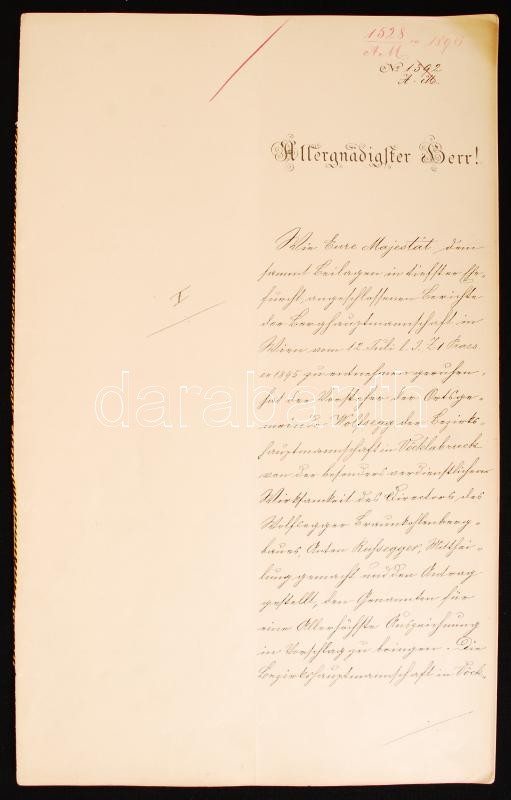 1528
A.M. 1896
№ 1592
A. M.
Allergnädigster Herr!
Wie Eure Majestät dem
sammt Beilagen in tiefster Ehr-
furcht angeschlossenen Berichte
der Berghauptmannschaft in
Wien vom 12 Juli l. J. Z 1
ex 1895 zu entnehmen geruhen,
hat der Vorsteher der Ortsge-
meinde Wolfsegg der Bezirks-
hauptmannschaft in Vöcklabruck
von der besonders verdienstlichen
Wirksamkeit des Directors des
Wolfsegger Braunkohlenberg-
baues, Anton Russegger, Mitthei-
lung gemacht und den Antrag
gestellt, den Genannten für
eine Allerhöchste Auszeichnung
in Vorschlag zu bringen. Die
Bezirkshauptmannschaft in Vöck-
I
darabanth